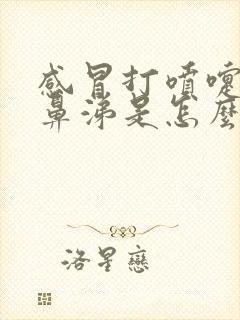 感冒打喷嚏
鼻涕是怎麼
洛星戀